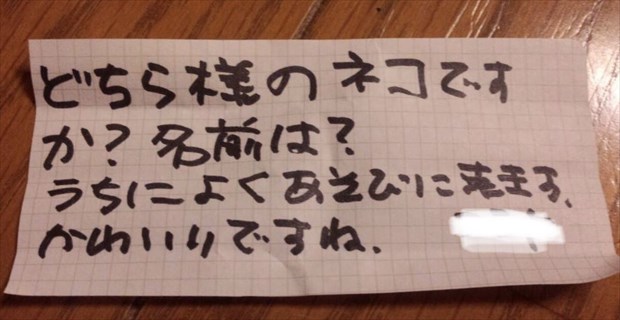 どちら様のネコです
か？名前は？
うちによくあそびに来ます、
かわいいですね、